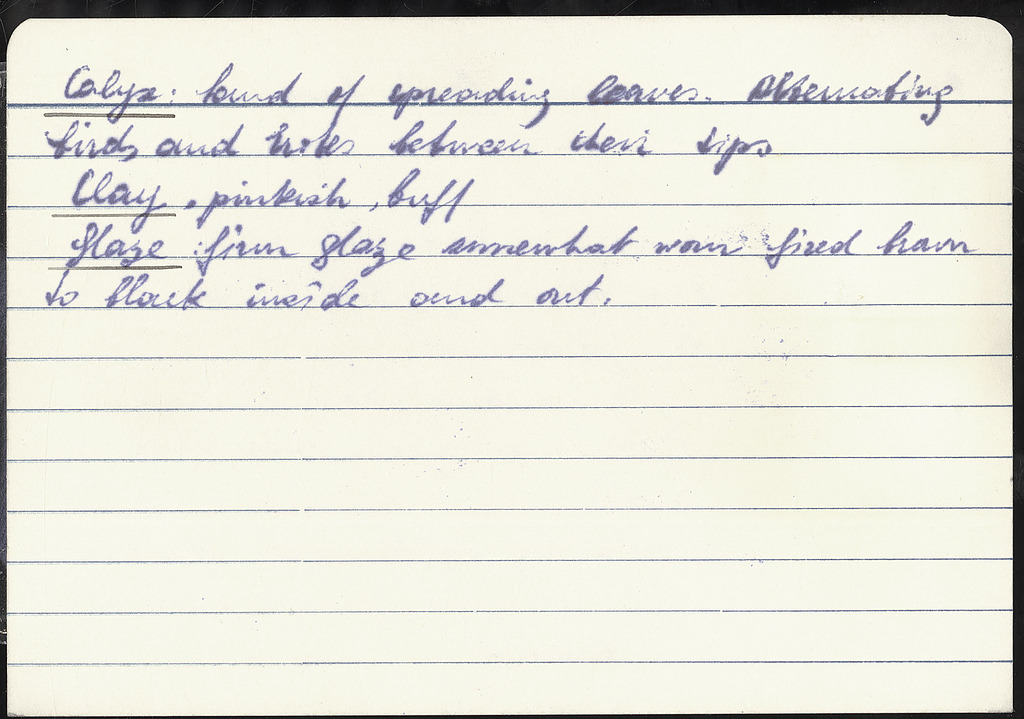 Calyx: band of spreading leaves. Alternating
birds and between their tips
Clay, pinkish, buff
Glaze: firm glaze somewhat worn fired brown
to black inside and out.